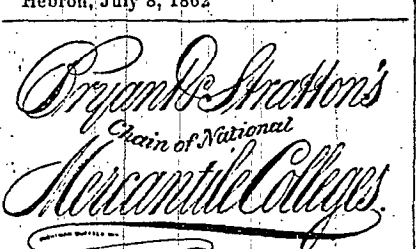 Hebron, July 8, 1862
Bryant & Stratton's
Chain of National
Mercantile Colleges.